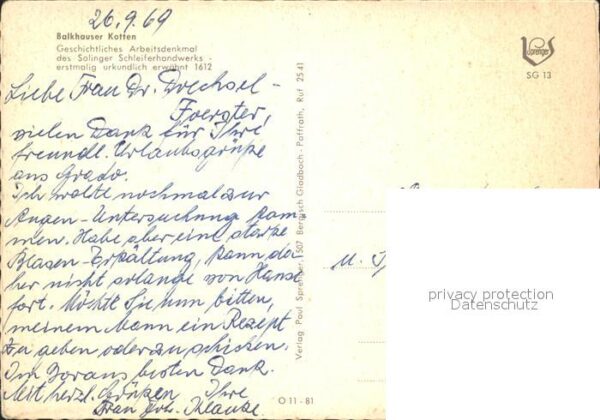 26.9.69
Balkhauser Kotten
Geschichtliches Arbeitsdenkmal
des Solinger Schleiferhandwerks -
erstmalig urkundlich erwähnt 1612
Liebe Frau Dr. Drechsel-
Foerster,
vielen Dank für Ihre
freundl. Urlaubsgrüße
aus Grado.
Ich wollte nochmal zur
Augen-Untersuchung kom
men. Habe aber eine starke
Blasen-Erkältung, kann da
her nicht so lange von Hause
fort. Möchte Sie nun bitten,
meinem Mann ein Rezept
zu geben oder zu schicken.
Im Voraus besten Dank.
Mit herzl. Grüßen Ihre
Frau Joh. Klauke
Verlag Paul Sprenger, 507 Bergisch Gladbach - Paffrath, Ruf 2541
O 11 - 81
Sprenger
SG 13
privacy protection
Datenschutz